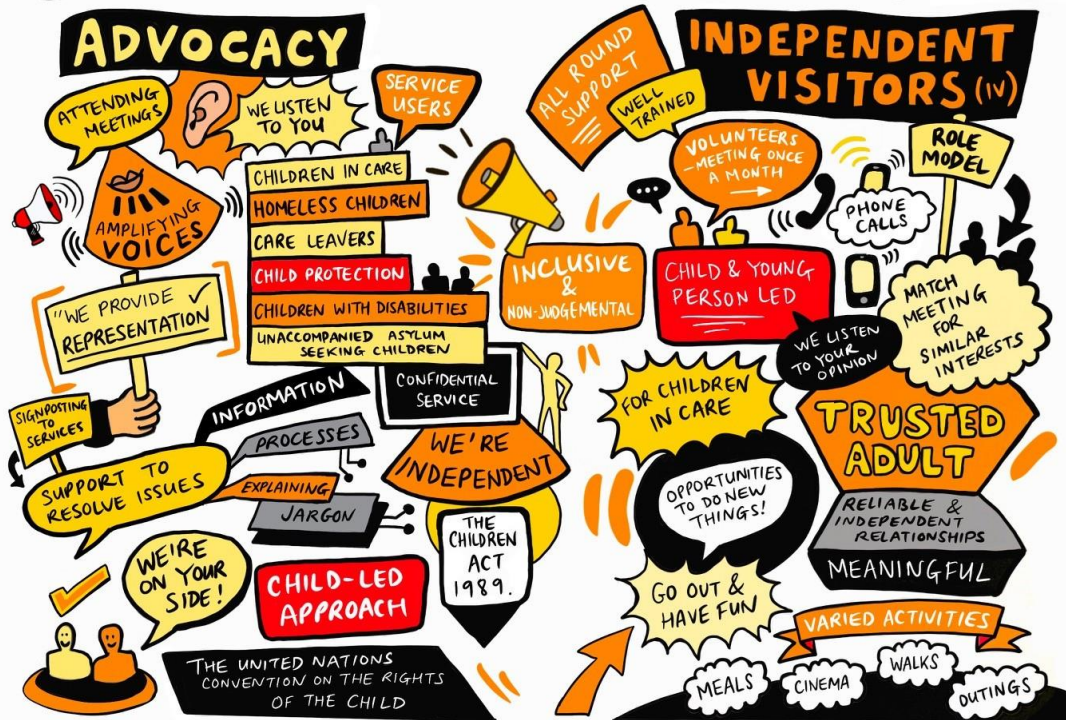 ADVOCACY
ATTENDING
MEETINGS
WE LISTEN
TO YOU
SERVICE
USERS
AMPLIFYING
VOICES
CHILDREN IN CARE
HOMELESS CHILDREN
CARE LEAVERS
CHILD PROTECTION
CHILDREN WITH DISABILITIES
UNACCOMPANIED ASYLUM
SEEKING CHILDREN
"WE PROVIDE
REPRESENTATION
SIGNPOSTING
TO
SERVICES
SUPPORT TO
RESOLVE ISSUES
INFORMATION
PROCESSES
EXPLAINING
JARGON
CONFIDENTIAL
SERVICE
WE'RE
INDEPENDENT
THE
CHILDREN
ACT
1989.
WE'RE
ON YOUR
SIDE!
CHILD-LED
APPROACH
THE UNITED NATIONS
CONVENTION ON THE RIGHTS
OF THE CHILD
INDEPENDENT
VISITORS (IV)
ALL ROUND
SUPPORT
WELL
TRAINED
VOLUNTEERS
- MEETING ONCE
A MONTH
ROLE
MODEL
PHONE
CALLS
INCLUSIVE
&
NON-JUDGEMENTAL
CHILD & YOUNG
PERSON LED
MATCH
MEETING
FOR
SIMILAR
INTERESTS
WE LISTEN
TO YOUR
OPINION
FOR CHILDREN
IN CARE
TRUSTED
ADULT
OPPORTUNITIES
TO DO NEW
THINGS!
RELIABLE &
INDEPENDENT
RELATIONSHIPS
MEANINGFUL
GO OUT &
HAVE FUN
VARIED ACTIVITIES
MEALS
CINEMA
WALKS
OUTINGS